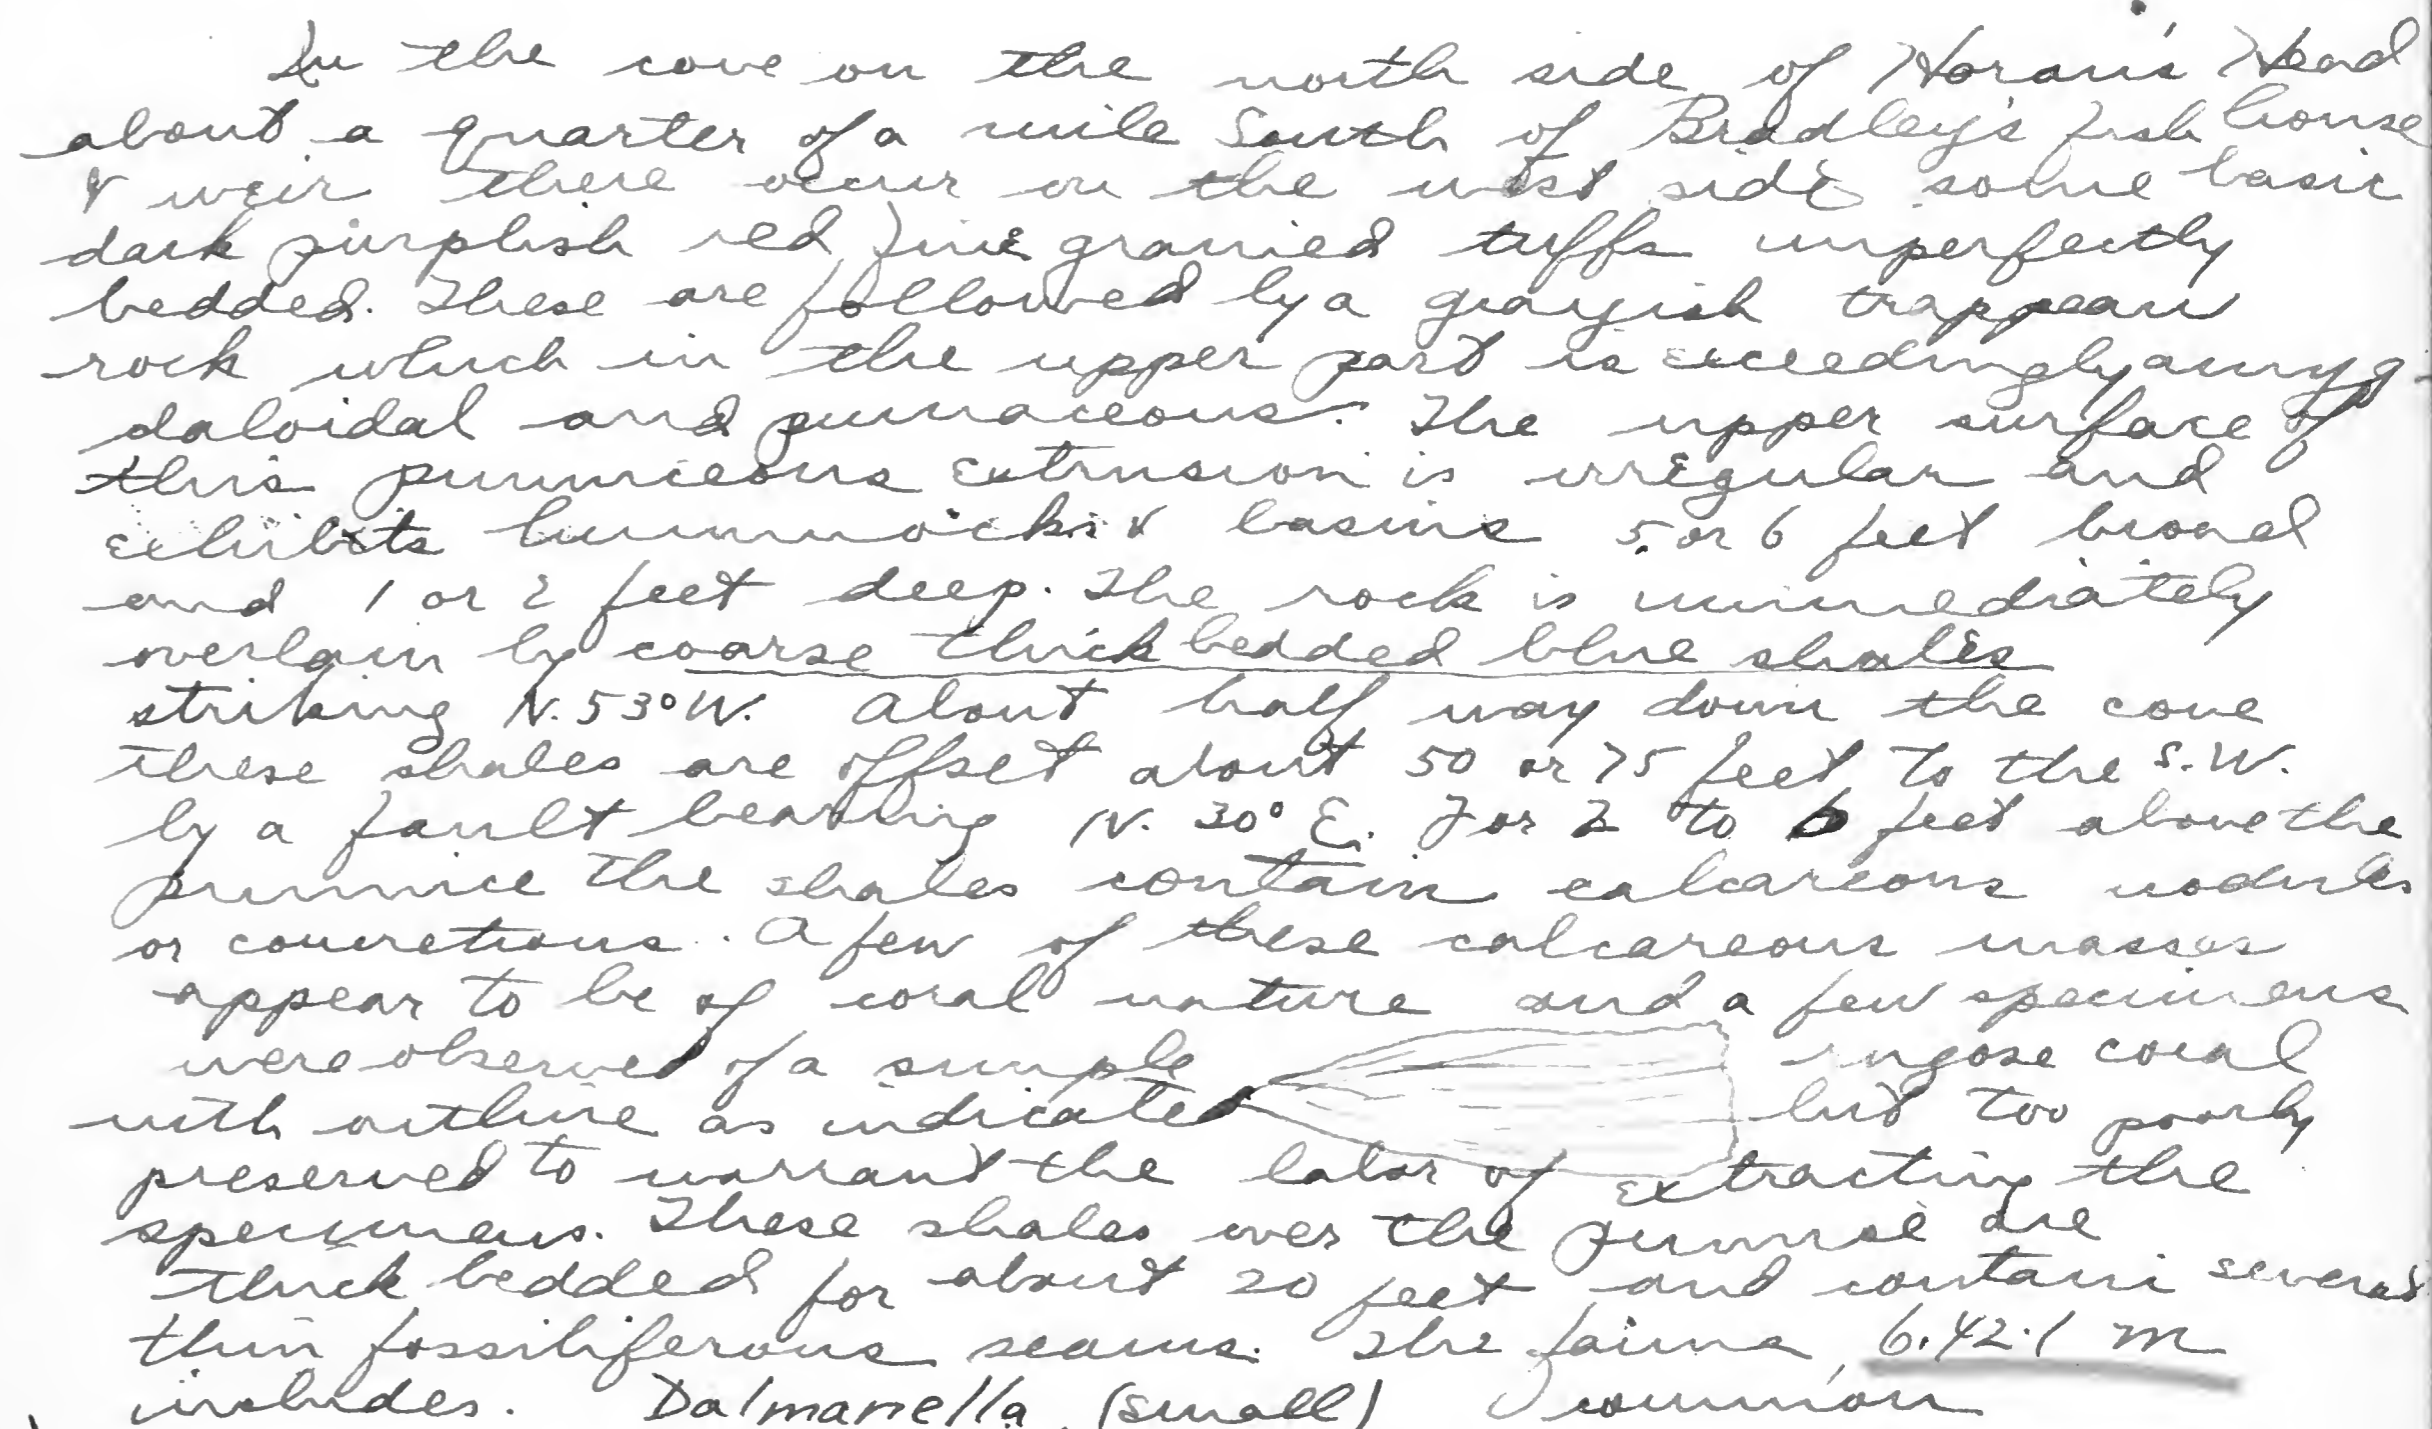 In the cove on the north side of Horan's Head
about a quarter of a mile South of Bradley's fish house
& weir there occur on the west side some basic
dark purplish red fine grained tuffs imperfectly
bedded. These are followed by a grayish trappean
rock which in the upper part is exceedingly amyg-
daloidal and pumaceous. The upper surface of
this pumiceous extrusion is irregular and
exhibits hummocks & basins 5 or 6 feet broad
and 1 or 2 feet deep. The rock is immediately
overlain by coarse thick bedded blue shales
striking N. 53° W. About half way down the cove
these shales are offset about 50 or 75 feet to the S.W.
by a fault bearing N. 30° E. For 2 to 6 feet above the
pumice the shales contain calcareous nodules
or concretions. A few of these calcareous masses
appear to be of coral nature and a few specimens
were observed of a simple rugose coral
with outline as indicated but too poorly
preserved to warrant the labor of extracting the
specimens. These shales over the pumice are
thick bedded for about 20 feet and contain several
thin fossiliferous seams. The fauna, 6.42.1 M
includes. Dalmanella (small) common